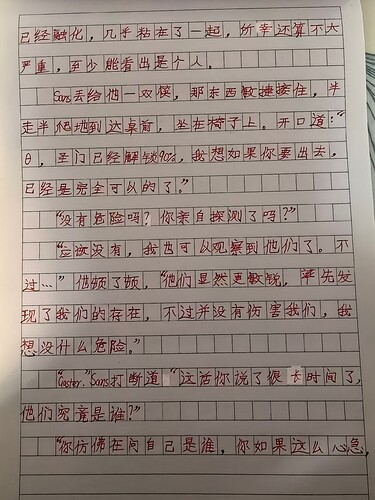 已经融化，几乎粘在了一起，所幸还算不太
严重，至少能看出是个人。
Sans丢给他一双筷，那东西敏捷接住，半
走半爬地到达桌前，坐在椅子上。开口道："
θ，圣门已经解锁90%，我想如果你要出去，
已经是完全可以的了。"
"没有危险吗？你亲自探测了吗？"
"应该没有，我也可以观察到他们了。不
过…"他顿了顿，"他们显然更敏锐，率先发
现了我们的存在，不过并没有伤害我们，我
想没什么危险。"
"Gaster，"Sans打断道"这话你说了很长时间了，
他们究竟是谁？"
"你仿佛在问自己是谁，你如果这么心急，